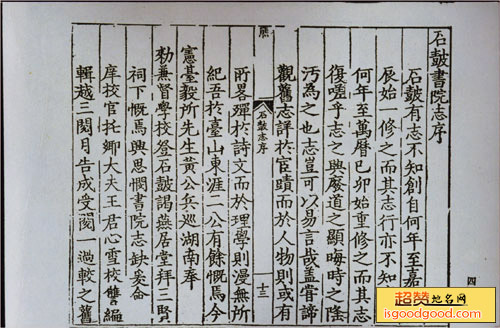 石鼓書院志序
石鼓有志不知創自何年至嘉
辰始一修之而其志行亦不知
何年至萬曆己卯始重修之而其志
復嗟乎志之興廢道之顯晦時之隆
汚為之也志豈可以易言哉蓋嘗諦
觀舊志詳於官蹟而於人物則或有
石鼓志序
十三
所畧殫於詩文而於理學則漫無所
紀吾於臺山東涯二公有餘慨焉今
憲臺毅所先生黃公兵巡湖南奉
勑兼督學校登石鼓謁燕居堂拜三賢
祠下慨焉興思憫書院志缺爰俞
庠校官托鄉大夫王君心雪校讐編
輯越三閱月告成受閱一過較之舊
四
超赞地名网
isgoodgood.com